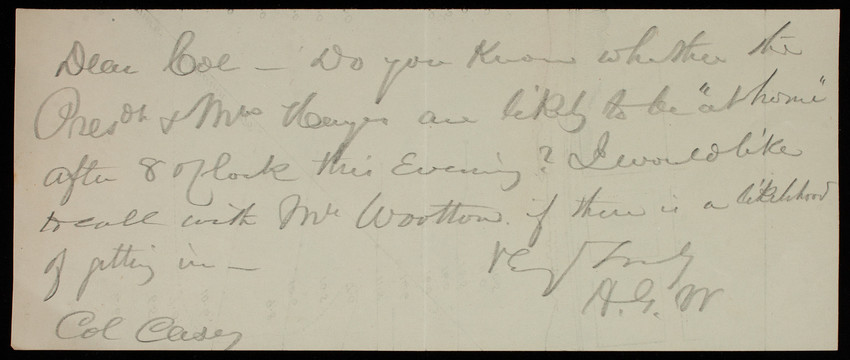 Dear Col — Do you Know whether the
Presdt & Mrs Hayes are likely to be "at home"
after 8 o'clock this Evening? I would like
to call with Mr Wootton if there is a likelihood
of getting in —
Very Truly
H. G. W
Col Casey